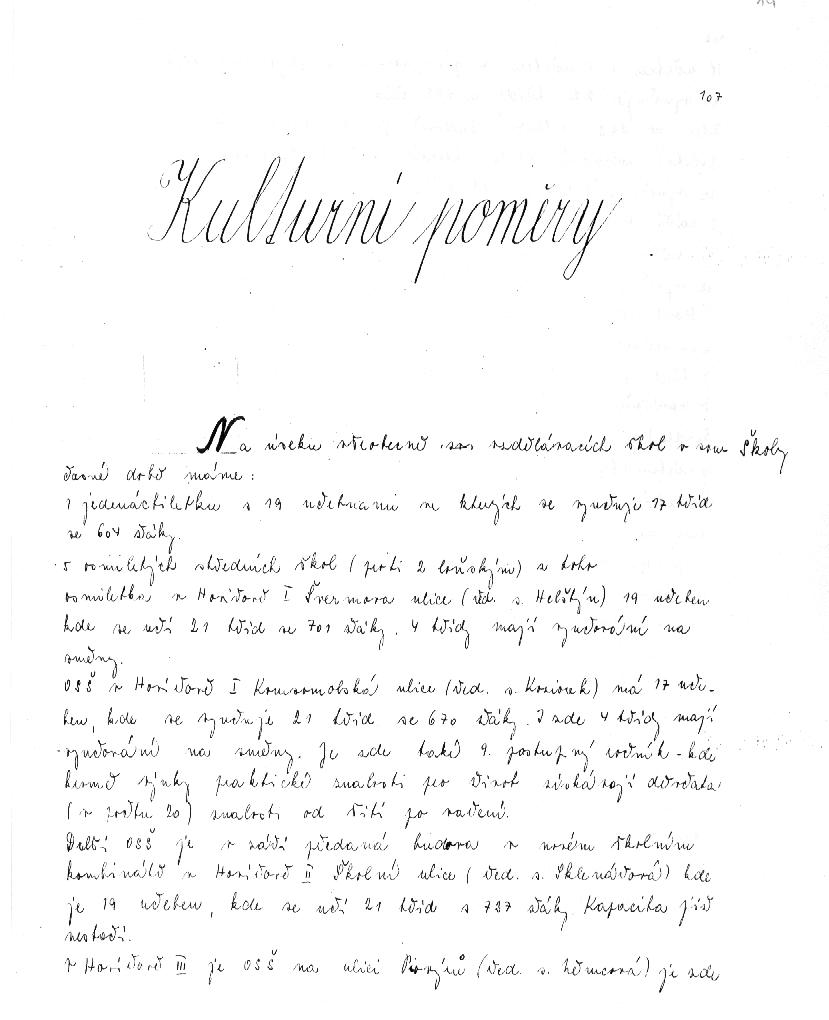 107
Kulturní poměry
Na úseku všeobecně vzdělávacích škol v sou Školy
časné době máme:
1 jedenáctiletku s 19 učebnami ve kterých se vyučuje 17 tříd
se 604 žáky.
5 osmiletých středních škol (proti 2 loňským) z toho
osmiletka v Havířově I Švermova ulice (řed. s. Helštýn) 19 učeben
kde se učí 21 tříd se 701 žáky. 4 třídy mají vyučování na
směny.
OSŠ v Havířově I Komsomolská ulice (řed. s. Koziorek) má 17 uče-
ben, kde se vyučuje 21 tříd se 670 žáky. I zde 4 třídy mají
vyučování na směny. Je zde také 9. postupný ročník - kde
kromě výuky praktické znalosti pro život získávají děvčata
(v počtu 20) znalosti od šití po vaření.
Další OSŠ je v září předaná budova v novém školním
kombinátě v Havířově II Školní ulice (řed. s. Sklenářová) kde
je 19 učeben, kde se učí 21 tříd s 727 žáky. Kapacita již
nestačí.
V Havířově III je OSŠ na ulici Pionýrů (řed. s. Němcová) je zde